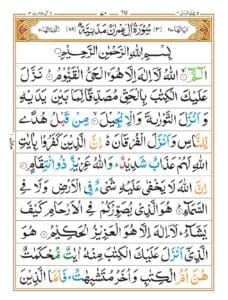 سُوْرَةُ اٰلِ عِمْرٰنَ مَدَنِيَّةٌ (٣) (٨٩)
بِسْمِ اللّٰهِ الرَّحْمٰنِ الرَّحِيْمِ
الٓمّٓ ۙ اللّٰهُ لَاۤ اِلٰهَ اِلَّا هُوَ الْحَىُّ الْقَيُّوْمُ ؕ نَزَّلَ
عَلَيْكَ الْكِتٰبَ بِالْحَقِّ مُصَدِّقًا لِّمَا بَيْنَ يَدَيْهِ
وَ اَنْزَلَ التَّوْرٰىةَ وَ الْاِنْجِيْلَ ۙ مِنْ قَبْلُ هُدًى
لِّلنَّاسِ وَ اَنْزَلَ الْفُرْقَانَ ؕ اِنَّ الَّذِيْنَ كَفَرُوْا بِاٰيٰتِ
اللّٰهِ لَهُمْ عَذَابٌ شَدِيْدٌ ؕ وَ اللّٰهُ عَزِيْزٌ ذُو انْتِقَامٍ ؕ
اِنَّ اللّٰهَ لَا يَخْفٰى عَلَيْهِ شَىْءٌ فِى الْاَرْضِ وَ لَا فِى
السَّمَآءِ ؕ هُوَ الَّذِىْ يُصَوِّرُكُمْ فِى الْاَرْحَامِ كَيْفَ
يَشَآءُ ؕ لَاۤ اِلٰهَ اِلَّا هُوَ الْعَزِيْزُ الْحَكِيْمُ هُوَ
الَّذِىْۤ اَنْزَلَ عَلَيْكَ الْكِتٰبَ مِنْهُ اٰيٰتٌ مُّحْكَمٰتٌ
هُنَّ اُمُّ الْكِتٰبِ وَ اُخَرُ مُتَشٰبِهٰتٌ ؕ فَاَمَّا الَّذِيْنَ